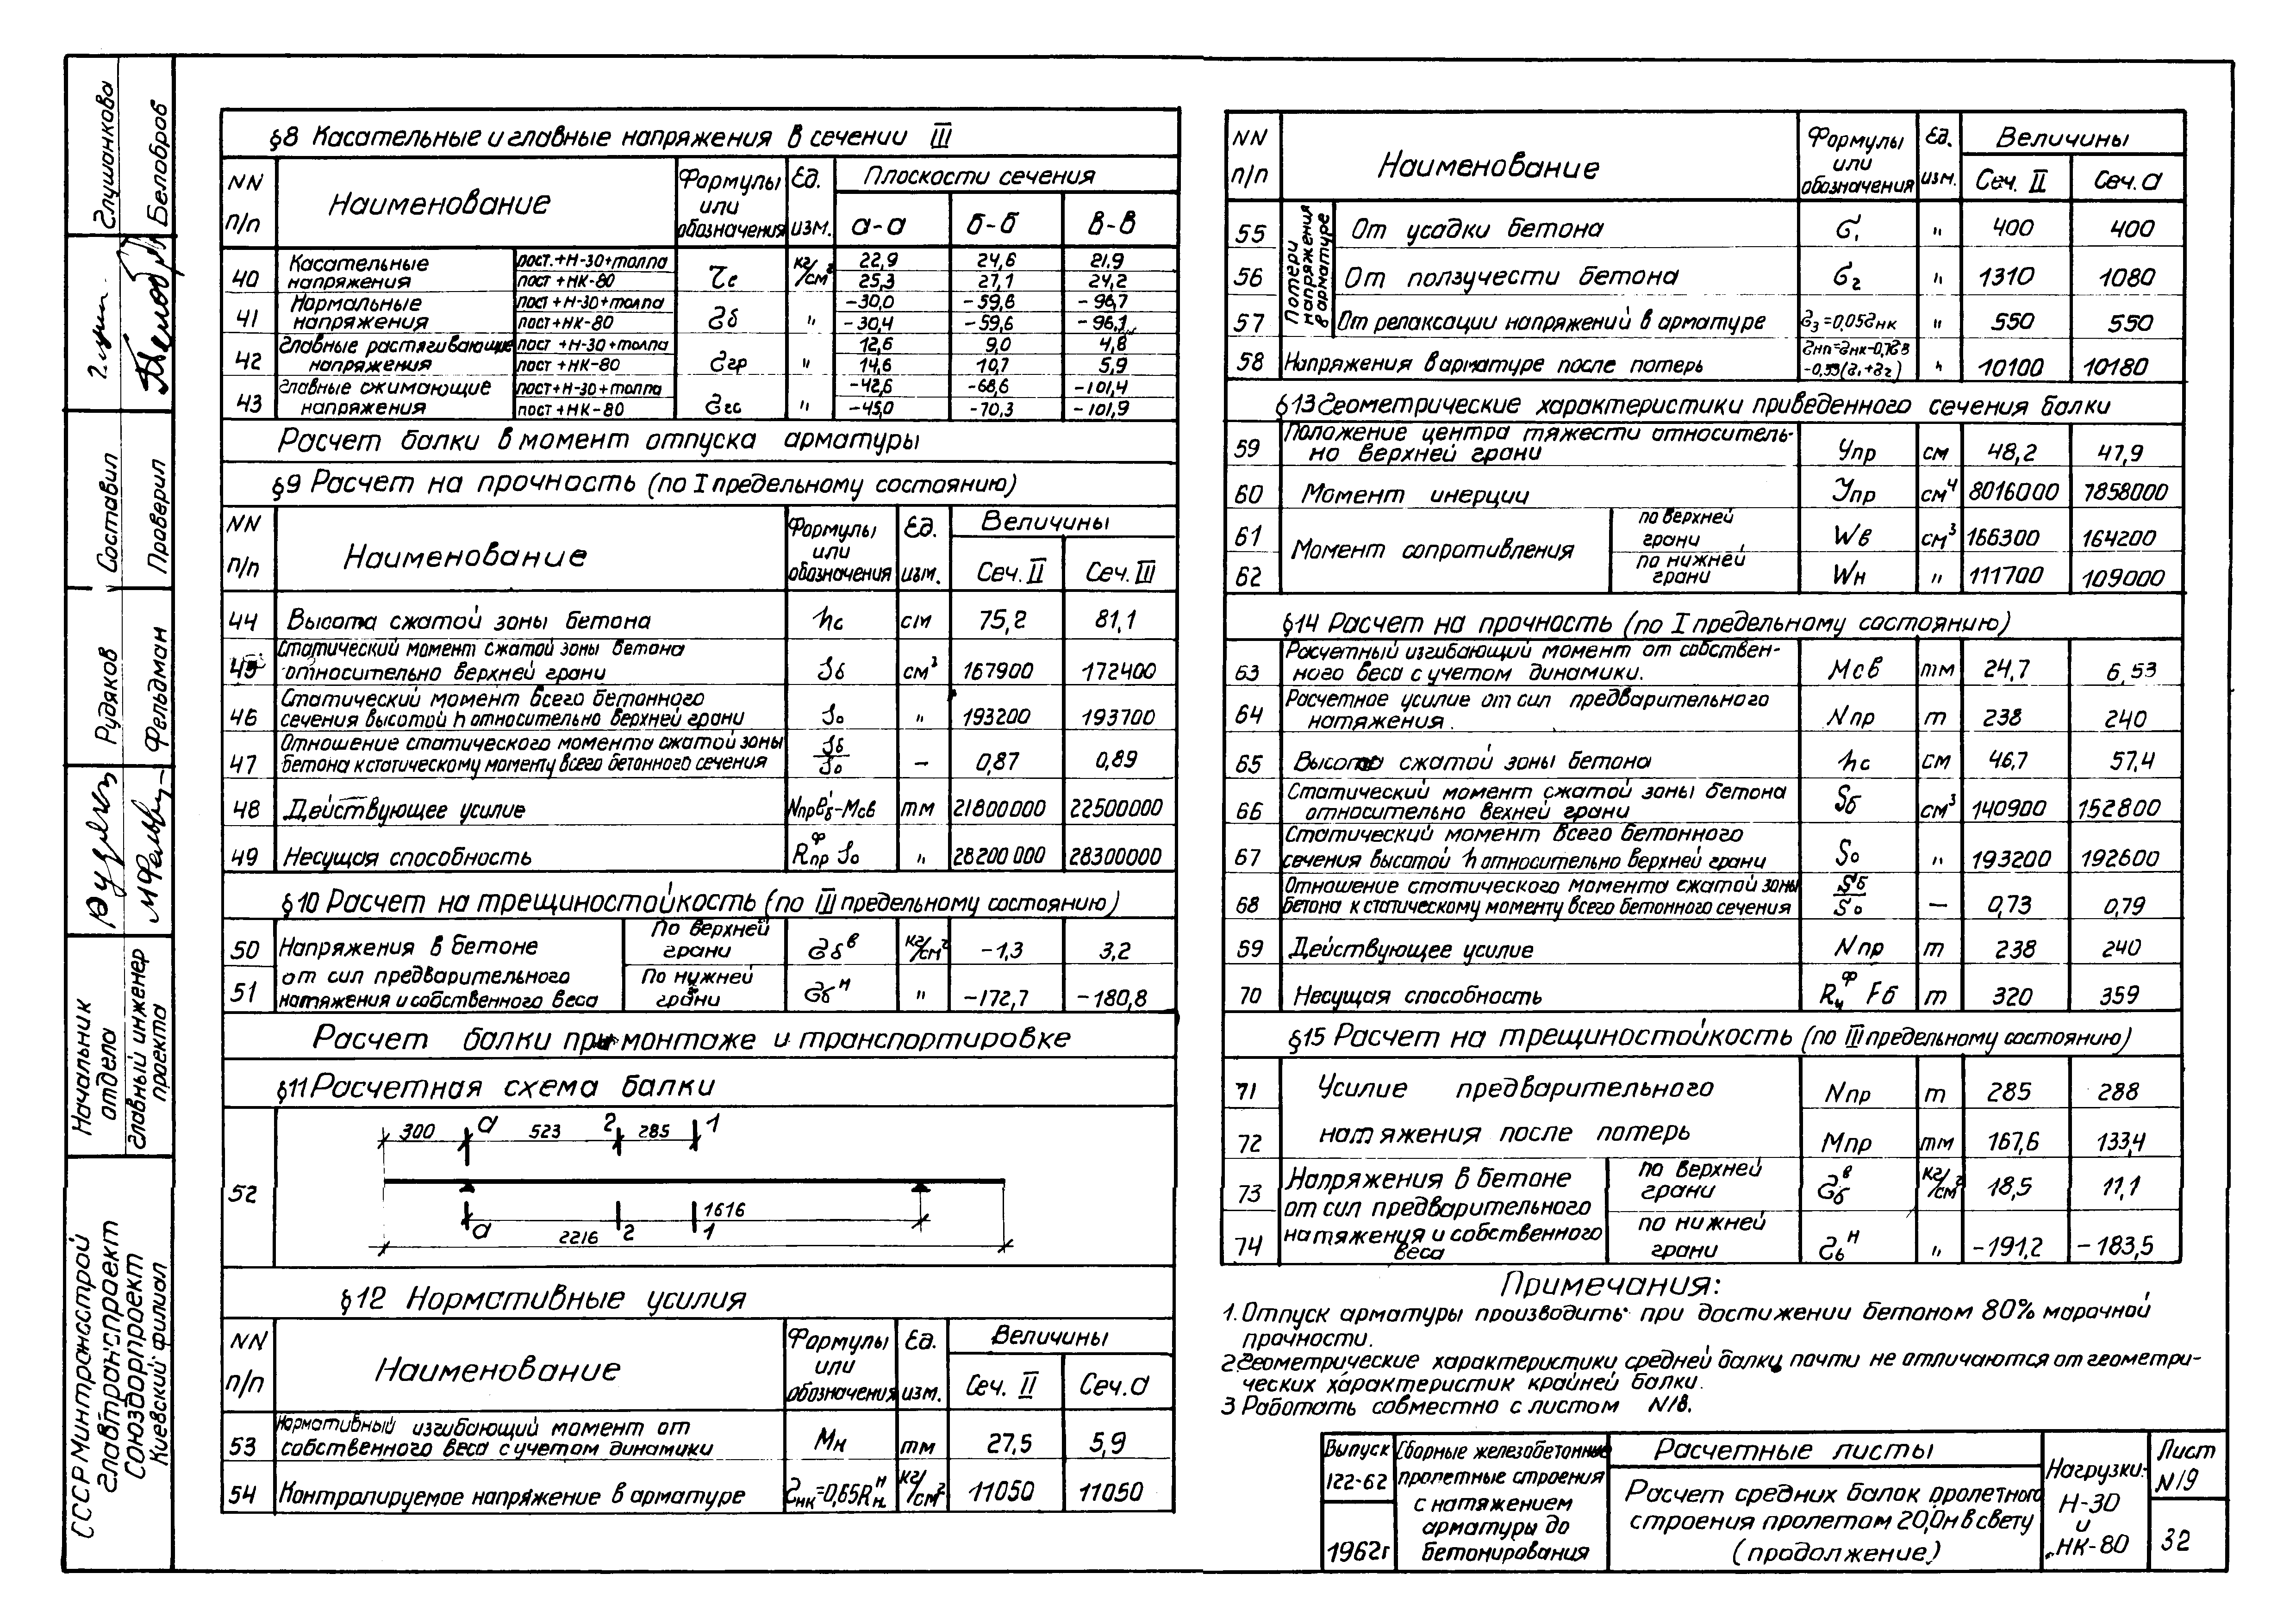 §8 Касательные и главные напряжения в сечении III
NN п/п Наименование Формулы или обозначения Ед. изм. Плоскости сечения
а-а б-б в-в
40 Касательные напряжения пост.+Н-30+толпа τс кг/см² 22,9 24,6 21,9
пост+НК-80 25,3 27,1 24,2
41 Нормальные напряжения пост+Н-30+толпа σб " -30,0 -59,6 -96,7
пост+НК-80 -30,4 -59,6 -96,1
42 Главные растягивающие напряжения пост+Н-30+толпа σгр " 12,6 9,0 4,8
пост+НК-80 14,6 10,7 5,9
43 Главные сжимающие напряжения пост+Н-30+толпа σгс " -42,6 -68,6 -101,4
пост+НК-80 -45,0 -70,3 -101,9
Расчет балки в момент отпуска арматуры
§9 Расчет на прочность (по I предельному состоянию)
NN п/п Наименование Формулы или обозначения Ед. изм. Величины
Сеч. II Сеч. III
44 Высота сжатой зоны бетона hс см 75,2 81,1
45 Статический момент сжатой зоны бетона относительно верхней грани Sб см³ 167900 172400
46 Статический момент всего бетонного сечения высотой h относительно верхней грани Sо " 193200 193700
47 Отношение статического момента сжатой зоны бетона к статическому моменту всего бетонного сечения Sб/Sо — 0,87 0,89
48 Действующее усилие Nпр e'б-Мсв тм 21800000 22500000
49 Несущая способность Rпр^ф Sо " 28200000 28300000
§10 Расчет на трещиностойкость (по III предельному состоянию)
50 Напряжения в бетоне По верхней грани σб^в кг/см² -1,3 3,2
51 от сил предварительного натяжения и собственного веса По нижней грани σб^н " -172,7 -180,8
Расчет балки при монтаже и транспортировке
§11 Расчетная схема балки
52
300 а 523 2 285 1
1616
а 2216 2 1
§12 Нормативные усилия
NN п/п Наименование Формулы или обозначения Ед. изм. Величины
Сеч. II Сеч. а
53 Нормативный изгибающий момент от собственного веса с учетом динамики Мн тм 27,5 5,9
54 Контролируемое напряжение в арматуре σнк=0,65Rн^н кг/см² 11050 11050
NN п/п Наименование Формулы или обозначения Ед. изм. Величины
Сеч. II Сеч. а
Потери напряжения в арматуре
55 От усадки бетона σ₁ " 400 400
56 От ползучести бетона σ₂ " 1310 1080
57 От релаксации напряжений в арматуре σ₃=0,05σнк " 550 550
58 Напряжения в арматуре после потерь " 10100 10180
§13 Геометрические характеристики приведенного сечения балки
59 Положение центра тяжести относительно верхней грани Yпр см 48,2 47,9
60 Момент инерции Jпр см⁴ 8016000 7858000
61 Момент сопротивления по верхней грани Wв см³ 166300 164200
62 по нижней грани Wн " 111700 109000
§14 Расчет на прочность (по I предельному состоянию)
63 Расчетный изгибающий момент от собственного веса с учетом динамики. Мсв тм 24,7 6,53
64 Расчетное усилие от сил предварительного натяжения. Nпр т 238 240
65 Высота сжатой зоны бетона hс см 46,7 57,4
66 Статический момент сжатой зоны бетона относительно вехней грани Sб см³ 140900 152800
67 Статический момент всего бетонного сечения высотой h относительно верхней грани Sо " 193200 192600
68 Отношение статического момента сжатой зоны бетона к статическому моменту всего бетонного сечения Sб/Sо — 0,73 0,79
69 Действующее усилие Nпр т 238 240
70 Несущая способность Rи^ф Fб т 320 359
§15 Расчет на трещиностойкость (по III предельному состоянию)
71 Усилие предварительного Nпр т 285 288
72 натяжения после потерь Мпр тм 167,6 133,4
73 Напряжения в бетоне от сил предварительного по верхней грани σб^в кг/см² 18,5 11,1
74 натяжения и собственного веса по нижней грани σб^н " -191,2 -183,5
Примечания:
1. Отпуск арматуры производить при достижении бетоном 80% марочной
прочности.
2. Геометрические характеристики средней балки почти не отличаются от геометри-
ческих характеристик крайней балки.
3 Работать совместно с листом N18.
Выпуск 122-62
1962г
Сборные железобетонные пролетные строения с натяжением арматуры до бетонирования
Расчетные листы
Расчет средних балок пролетного
строения пролетом 20,0м в свету
(продолжение)
Нагрузки: Н-30 и НК-80
Лист N19
32
Глушанкова
Белобров
Составил
Проверил
Рудяков
Фельдман
Начальник отдела
Главный инженер проекта
СССР Минтрансстрой
Главтранспроект
Союздорпроект
Киевский филиал